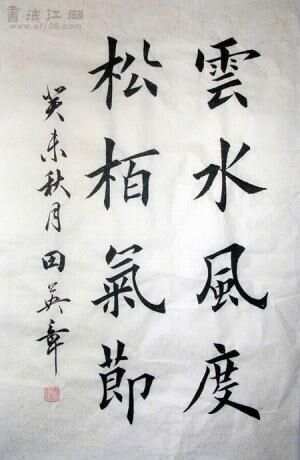 雲水風度
松栢氣節
癸未秋月田英章
書法江湖